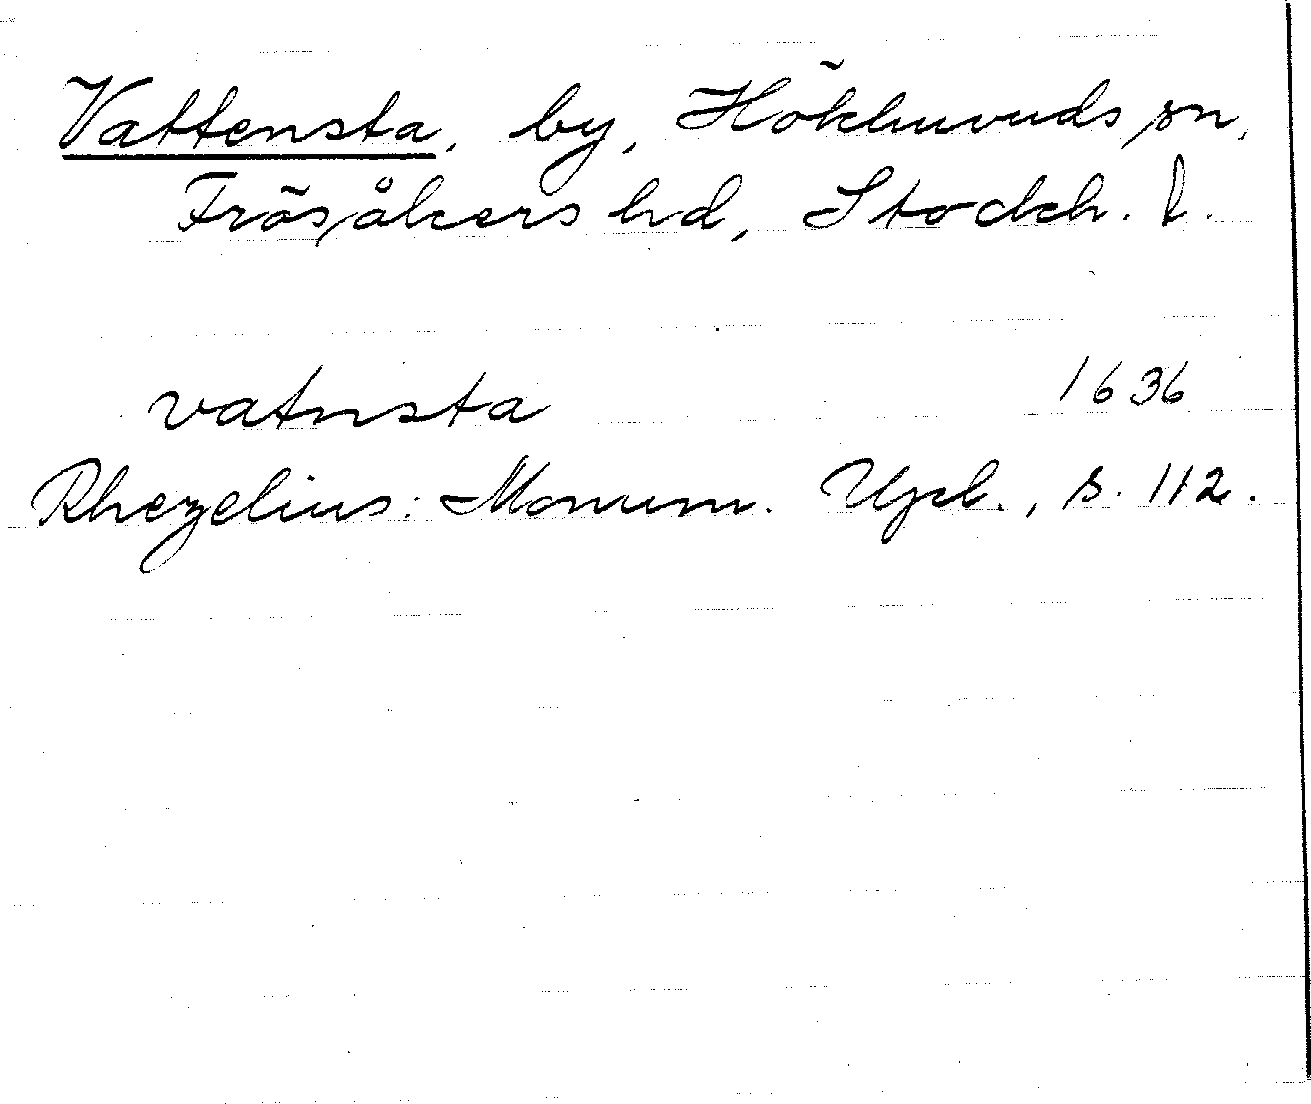 Vattensta, by, Hökhuvuds sn,
Frösåkers hd, Stockh. l.
vatnsta 1636
Rhezelius: Monum. Upl., s. 112.